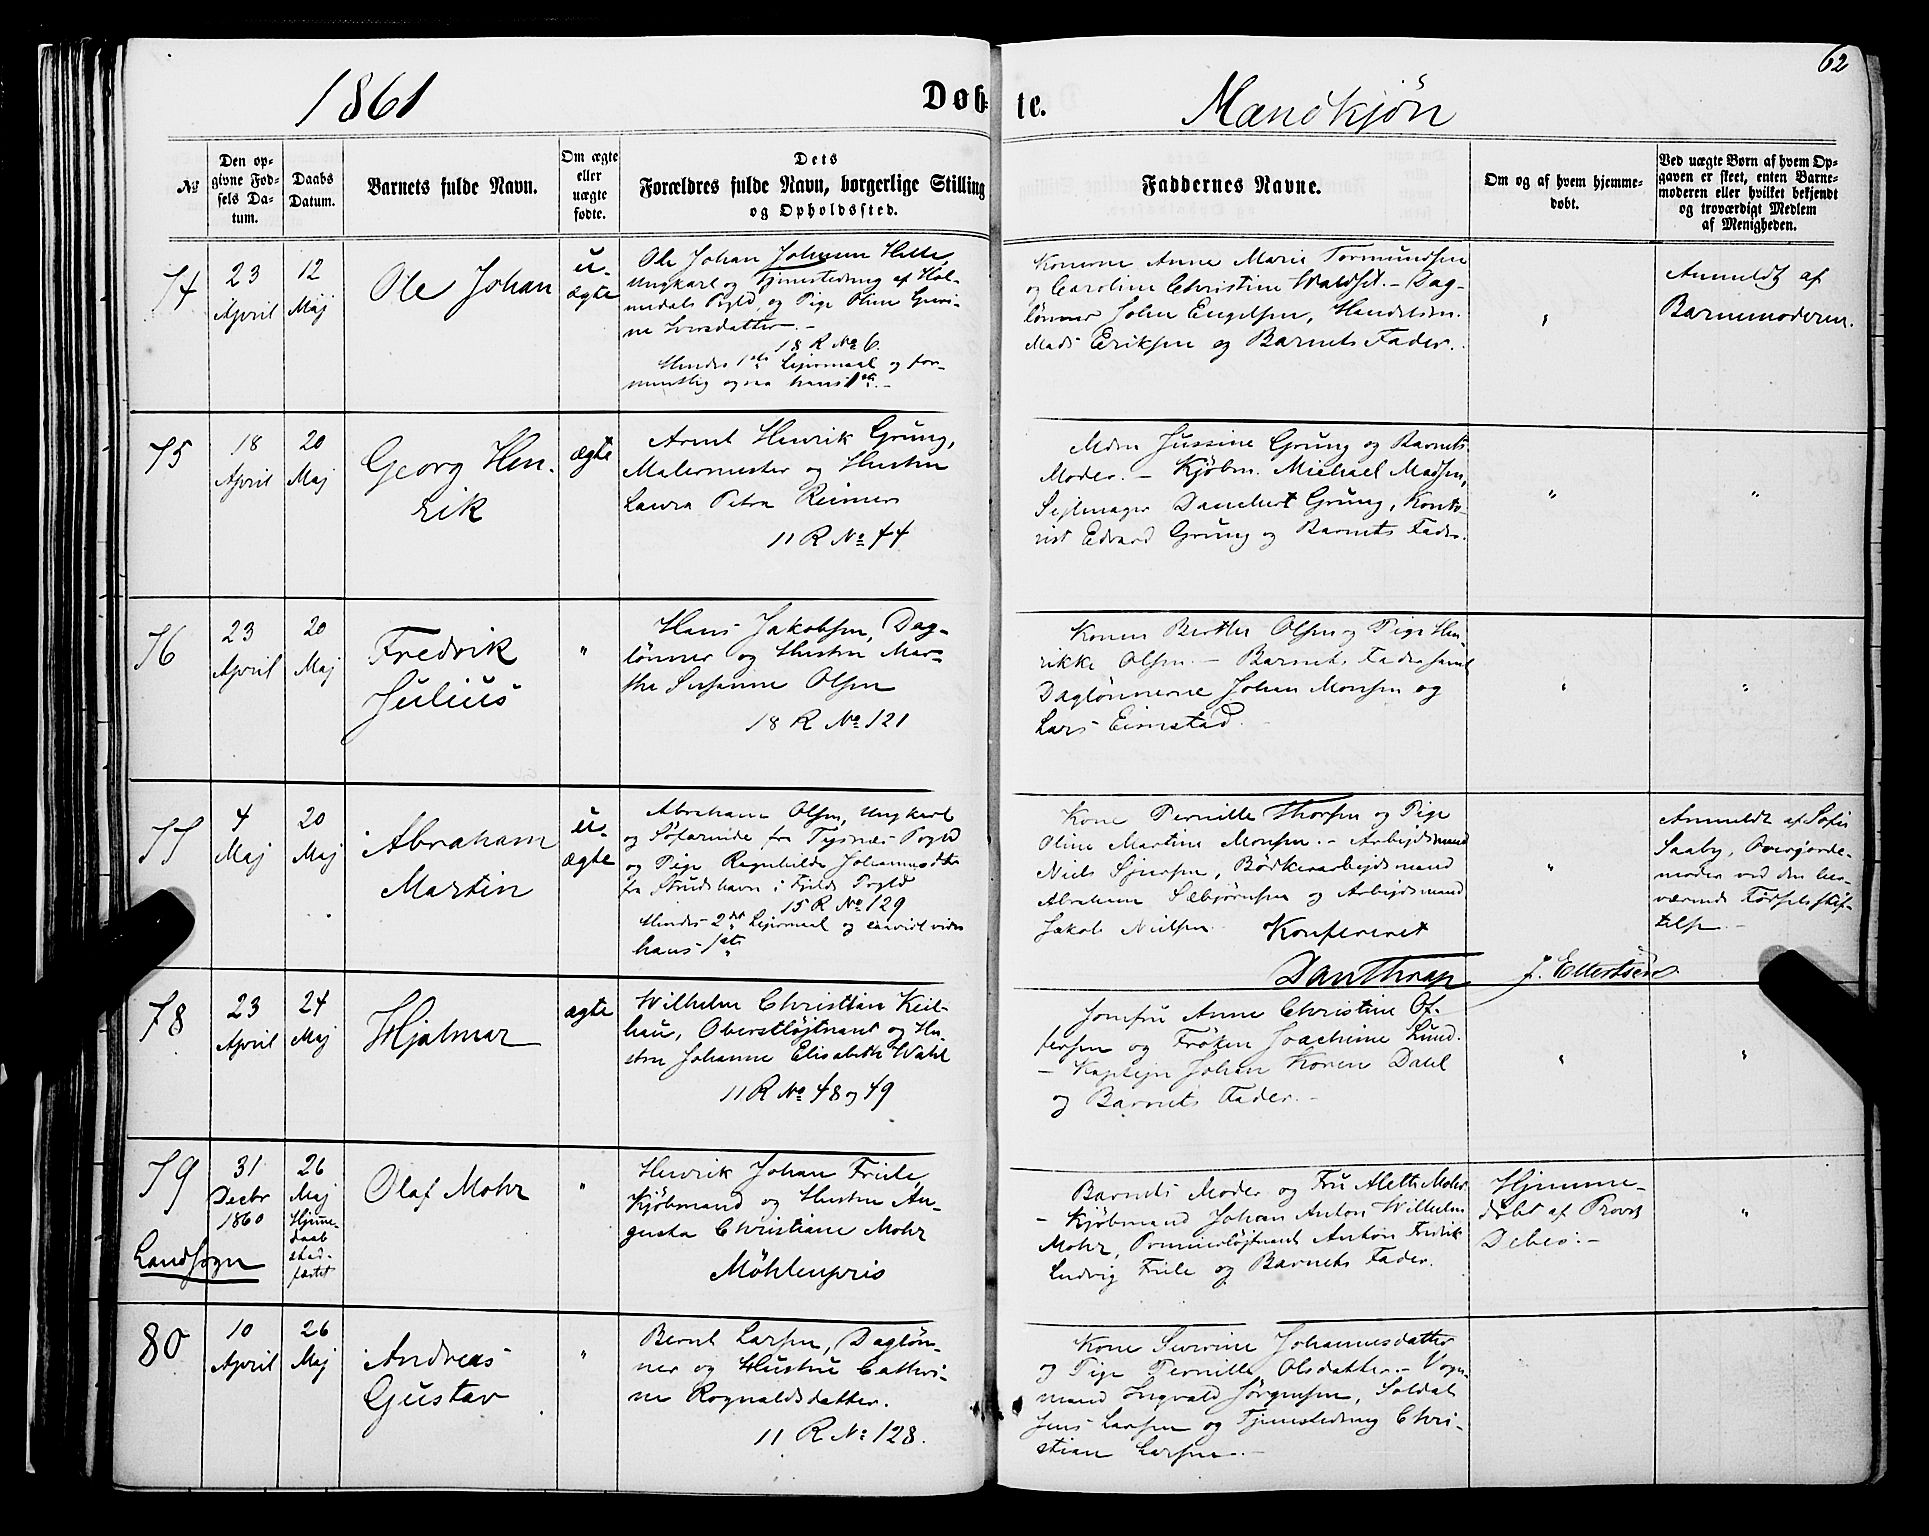 62
1861
Døb-
te.
Mandkjön
No
Den op-
givne Fød-
sels Da-
tum.
Daabs
Datum.
Barnets fulde Navn.
Om ægte
eller
uægte
fødte.
Dets
Forældres fulde Navn, borgerlige Stilling
og Opholdssted.
Faddernes Navne.
Om og af hvem hjemme-
døbt.
Ved uægte Børn af hvem Op-
gaven er skeet, enten Barne-
moderen eller hvilket bekjendt
og troværdigt Medlem
af Menigheden.
74
23
April
12
Maj
Ole Johan
u-
ægte
Ole Johan Johnsen Helle,
Ungkarl og Tjenestedreng af Hol-
medals Pgld, og Pige Oline
ne Iversdatter. -
18 R No 6.
Hendes 1ste Lejermaal og for-
mentlig ogsaa hans 1ste. -
Konerne Anne Marie Tormundsen
og Caroline Christine - Dag-
lønner John Engelsen,
Mads Eriksen og Barnets Fader.
"
Anmeldt af
Barnemoderen.
75
18
April
20
Maj
Georg Hen-
rik
ægte
Arnt Henrik Grung,
Malermester og Hustru
Laura Petra Reimers
11 R No 44
Mdm Jussine Grung og Barnets
Moder. - Kjöbm. Michael Madsen,
Sejlmager Danchert Grung, Konto-
rist Edvard Grung og Barnets Fader.
"
"
76
23
April
20
Maj
Fredrik
Julius
"
Hans Jakobsen, Dag-
lönner og Hustru Mar-
the Susanne Olsen
18 R No 121
Konen Berthe Olsen og Pige Hen-
rikke Olsen. - Barnets Fader samt
Daglönnerne Johan Monsen og
Lars Eimstad. -
"
"
77
4
Maj
20
Maj
Abraham
Martin
u-
ægte
Abraham Olsen, Ungkarl
og Söfarende fra Tysnes Pgld
og Pige Ragnhilde Johannesdtr
fra Strudshavn i Fjelds Pgld
15 R No 129
Hendes 2det Lejermaal og saavidt vides
hans 1ste
Kone Pernille Thorsen og Pige
Oline Martine Monsen. - Arbejdsmand
Niels Sjursen, Bödkerarbejdsmand
Abraham Sæbjörnsen og Arbejdsmand
Jakob Nielsen.
Konfereret
DanThrap
J. Ellertsen
"
Anmeldt af Sofie
Saaby, Overgjorde-
moder ved den her-
værende Födselsstif-
telse. -
78
23
April
24
Maj
Hjalmar
ægte
Wilhelm Christian Keil-
hau, Oberstløjtnant og Hu-
stru Johanne Elisabeth Wahl
11 R No 48 og 49
Jomfru Anne Christine Of-
tersen og Fröken Joachime Lund.
- Kaptejn Johan Koren Dahl
og Barnets Fader. -
"
"
79
Landsogn
31
Decbr
1860
26
Maj
Hjemme-
daab
stad-
fæstet
Olaf Mohr
"
Henrik Johan Friele
Kjöbmand og Hustru Au-
gusta Christiane Mohr
Möhlenpris
Barnets Moder og Fru Alette Mohr.
- Kjöbmand Johan Anton Wilhelm
Mohr, Premierløjtnant Anton Fredrik
Ludvig Friele og Barnets Fader.
Hjemme-
döbt af Provst
Debes. -
"
80
10
April
26
Maj
Andreas
Gustav
"
Bernt Larsen, Daglön-
ner og Hustru Cathri-
ne Rognaldsdatter.
11 R No 128.
Kone Severine Johannesdatter
og Pige Pernille Olsdatter. - Vogn-
mand Ingvald Jörgensen, Soldat
Jens Larsen og Tjenestedreng Chri-
stian Larsen. -